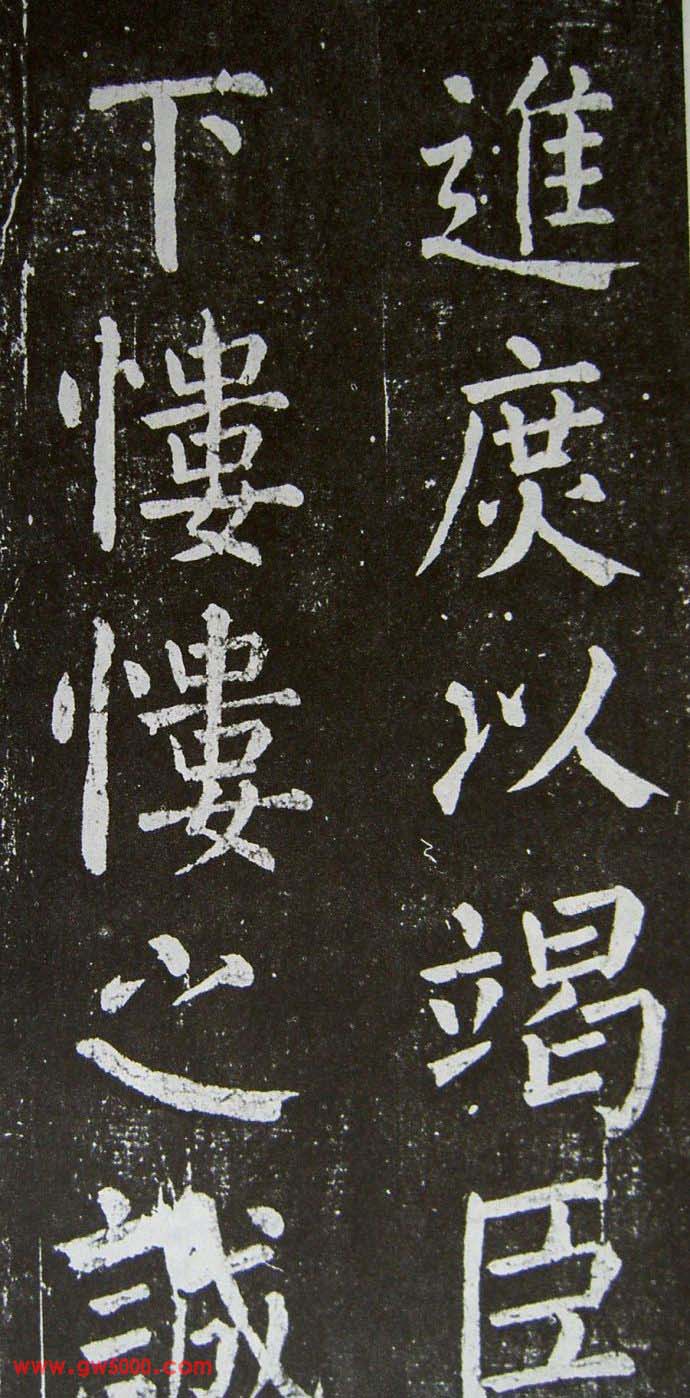 進庶以竭臣
下慺慺之誠
www.gw5000.com